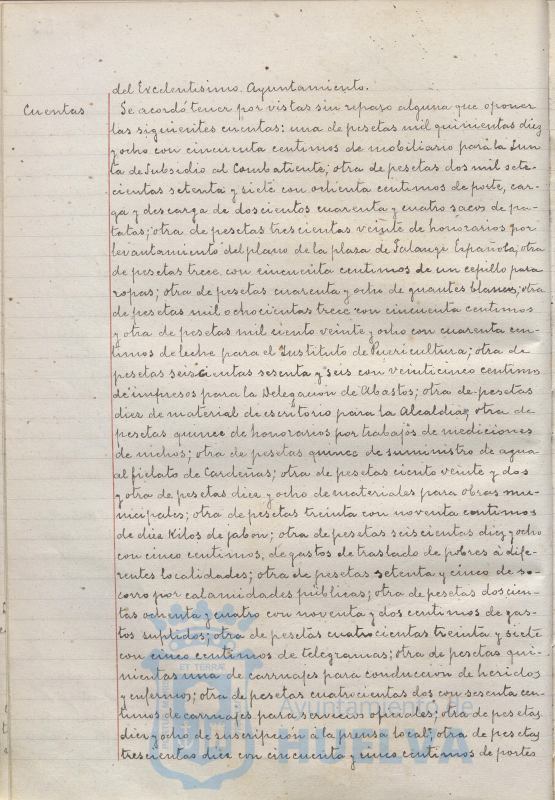 del Excelentisimo Ayuntamiento.
Cuentas
Se acordó tener por vistas sin reparo alguno que oponer
las siguientes cuentas: una de pesetas mil quinientas diez
y ocho con cincuenta centimos de mobiliario para la Jun-
ta de Subsidio al Combatiente; otra de pesetas dos mil sete-
cientas setenta y siete con ochenta centimos de porte, car-
ga y descarga de doscientos cuarenta y cuatro sacos de pa-
tatas; otra de pesetas trescientas veinte de honorarios por
levantamiento del plano de la plaza de Falange Española; otra
de pesetas trece con cincuenta centimos de un cepillo para
ropas; otra de pesetas cuarenta y ocho de guantes blancos; otra
de pesetas mil ochocientas trece con cincuenta centimos
y otra de pesetas mil ciento veinte y ocho con cuarenta cen-
timos de leche para el Instituto de Puericultura; otra de
pesetas seiscientas sesenta y seis con veinticinco centimos
de impresos para la Delegación de Abastos; otra de pesetas
diez de material de escritorio para la Alcaldia; otra de
pesetas quince de honorarios por trabajos de mediciones
de nichos; otra de pesetas quince de suministro de agua
al fielato de Cardeñas; otra de pesetas ciento veinte y dos
y otra de pesetas diez y ocho de materiales para obras mu-
nicipales; otra de pesetas treinta con noventa centimos
de diez Kilos de jabon; otra de pesetas seiscientas diez y ocho
con cinco centimos, de gastos de traslado de pobres á dife-
rentes localidades; otra de pesetas setenta y cinco de so-
corro por calamidades públicas; otra de pesetas doscien-
tas ochenta y cuatro con noventa y dos centimos de gas-
tos suplidos; otra de pesetas cuatrocientas treinta y siete
con cinco centimos de telegramas; otra de pesetas qui-
nientas una de carruajes para conduccion de heridos
y enfermos; otra de pesetas cuatrocientas dos con sesenta cen-
timos de carruajes para servicios oficiales; otra de pesetas
diez y ocho de suscripcion á la prensa local; otra de pesetas
trescientas diez con cincuenta y cinco centimos de portes
ET TERRÆ
Ayuntamiento de
HUELVA